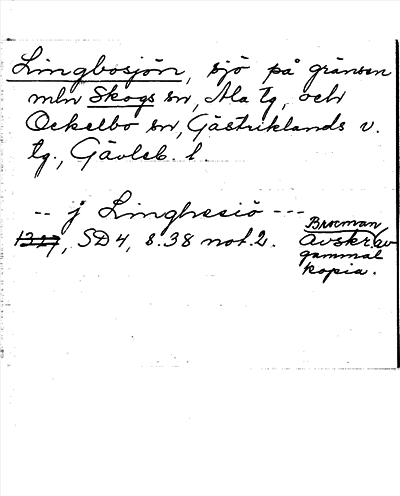 Lingbosjön, sjö på gränsen
mln Skogs sn, Ala tg, och
Ockelbo sn, Gästriklands v.
tg., Gävleb. l.
-- j Linghesiö ---
1327, SD 4, s. 38 not. 2.
Broman
Avskr. av
gammal
kopia.